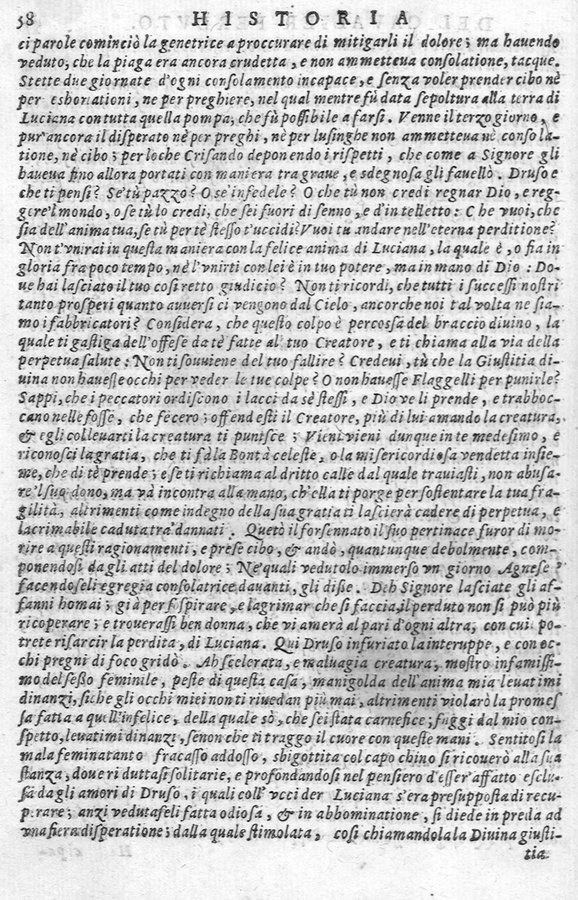 58 HISTORIA
ci parole cominciò la genetrice a proccurare di mitigarli il dolore; ma havendo
veduto, che la piaga era ancora crudetta, e non ammetteva consolatione, tacque.
Stette due giornate d'ogni consolamento incapace, e senza voler prender cibo nè
per eshorationi, ne per preghiere, nel qual mentre fù data sepoltura alla terra di
Luciana con tutta quella pompa, che fù possibile a farsi. Venne il terzo giorno, e
pur'ancora il disperato nè per preghi, nè per lusinghe non ammetteva nè consola-
tione, nè cibo; per loche Crisando deponendo i rispetti, che come a Signore gli
haveva fino allora portati con maniera tra grave, e sdegnosa gli favellò. Druso e
che ti pensi? Se'tù pazzo? O se' infedele? O che tù non credi regnar Dio, e reg-
gere'l mondo, o se tù lo credi, che sei fuori di senno, e d'intelletto: Che vuoi, che
sia dell'anima tua, se tù per te stesso t'uccidi? Vuoi tu andare nell'eterna perditione?
Non t'unirai in questa maniera con la felice anima di Luciana, la quale è, o fia in
gloria fra poco tempo, nè l'unirti con lei è in tuo potere, ma in mano di Dio: Do-
ve hai lasciato il tuo così retto giudicio? Non ti ricordi, che tutti i successi nostri
tanto prosperi quanto avversi ci vengono dal Cielo, ancorche noi tal volta ne sia-
mo i fabbricatori? Considera, che questo colpo è percossa del braccio divino, la
quale ti gastiga dell'offese da tè fatte al tuo Creatore, e ti chiama alla via della
perpetua salute: Non ti souviene del tuo fallire? Credevi, tù che la Giustitia di-
vina non havesse occhi per veder le tue colpe? O non havesse Flaggelli per punirle?
Sappi, che i peccatori ordiscono i lacci da sè stessi, e Dio ve li prende, e trabboc-
cano nelle fosse, che fecero; offendesti il Creatore, più di lui amando la creatura,
& egli col levarti la creatura ti punisce; Vieni vieni dunque in te medesimo, e
riconosci la gratia, che ti fà la Bontà celeste, o la misericordiosa vendetta insie-
me, che di tè prende; e se ti richiama al dritto calle dal quale traviasti, non abusa-
re'l suo dono, ma và incontra alla mano, ch'ella ti porge per sostentare la tua fra-
gilità, altrimenti come indegno della sua gratia ti lascierà cadere di perpetua, e
lacrimabile caduta tra' dannati. Quetò il forsennato il suo pertinace furor di mo-
rire a questi ragionamenti, e prese cibo, & andò, quantunque debolmente, com-
ponendosi dagli atti del dolore; Ne' quali vedutolo immerso un giorno Agnese?
facendoseli egregia consolatrice davanti, gli disse. Deh Signore lasciate gli af-
fanni homai; già per sospirare, e lagrimar che si faccia, il perduto non si può più
ricoperare; e troverassi ben donna, che vi amerà al pari d'ogni altra, con cui po-
trete risarcir la perdita, di Luciana. Qui Druso infuriato la interuppe, e con oc-
chi pregni di foco gridò. Ah scelerata, e malvagia creatura, mostro infamissi-
mo del sesso feminile, peste di questa casa, manigolda dell'anima mia levatimi
dinanzi, siche gli occhi miei non ti rivedan più mai, altrimenti violarò la promes
sa fatta a quell'infelice, della quale sò, che sei stata carnefice; fuggi dal mio con-
spetto, levatimi dinanzi, senon che ti traggo il cuore con queste mani. Sentitosi la
mala femina tanto fracasso addosso, sbigottita col capo chino si ricoverò alla sua
stanza, dove riduttasi solitarie, e profondandosi nel pensiero d'esser affatto esclu-
sa dagli amori di Druso, i quali coll'uccider Luciana s'era presupposta di recu-
perare; anzi vedutaseli fatta odiosa, & in abbominatione, si diede in preda ad
una fiera disperatione; dalla quale stimolata, così chiamandola la Divina giusti-
tia